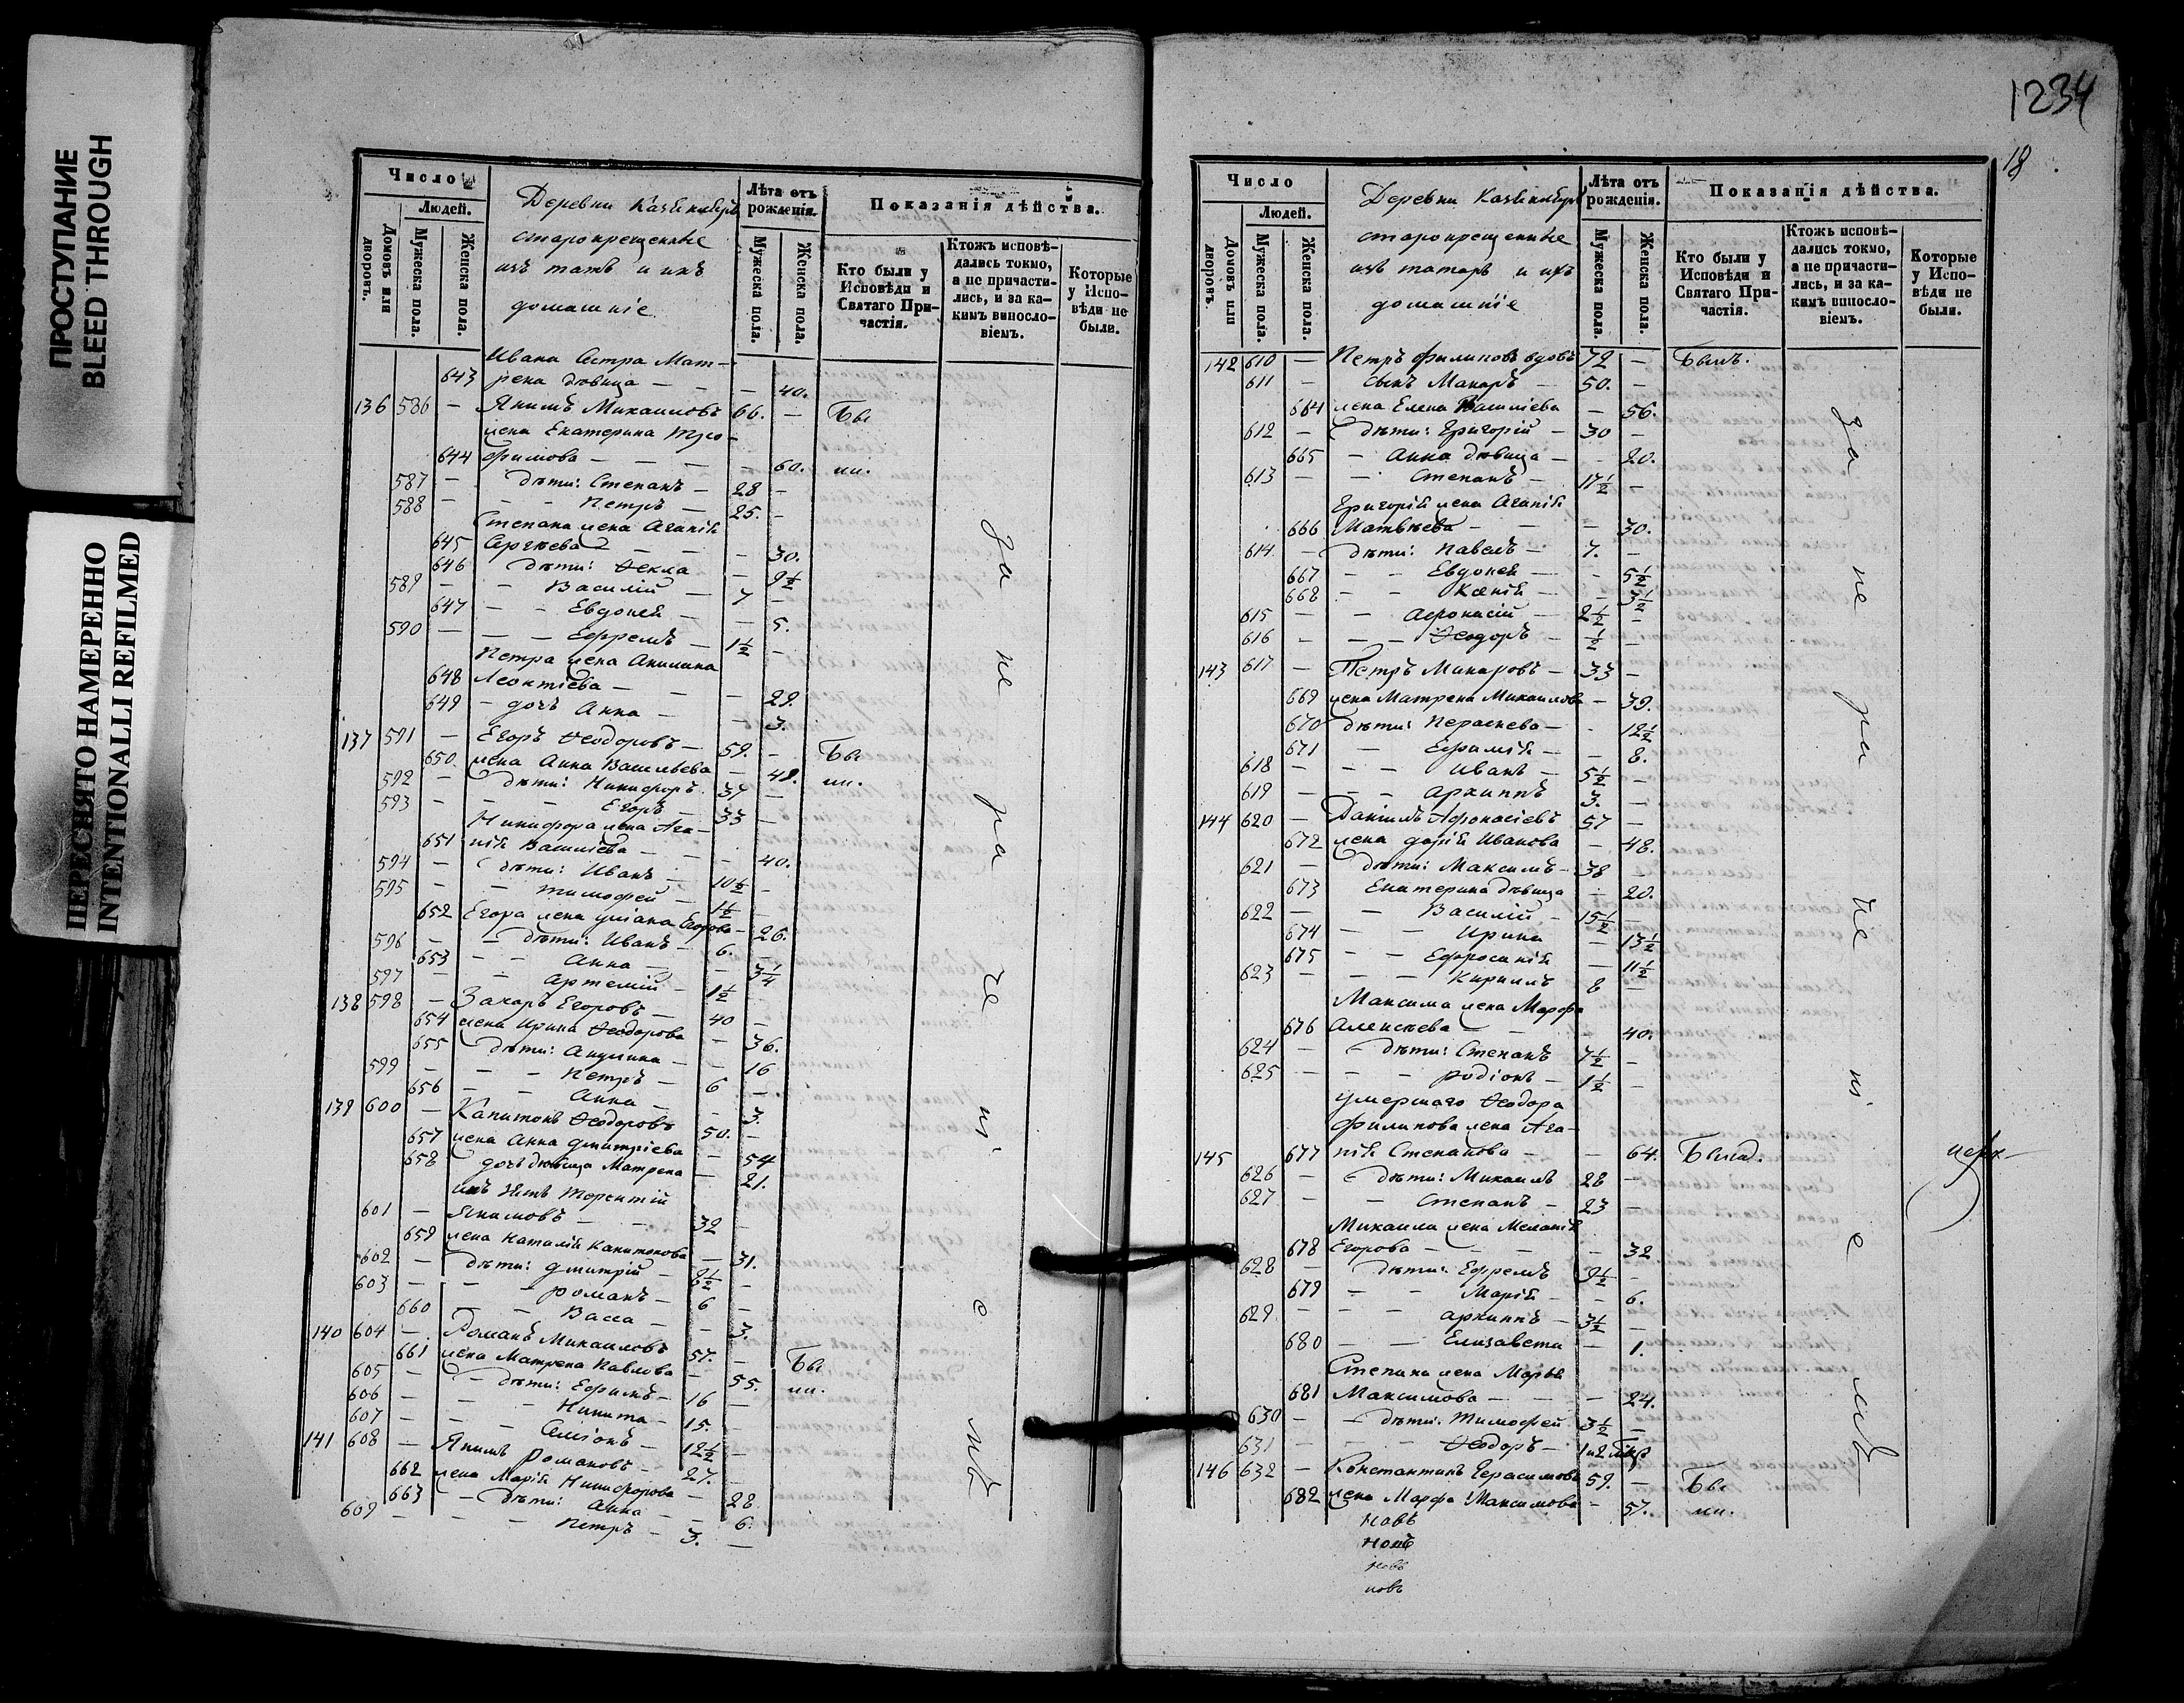 ПРОСТУПАНИЕ
BLEED THROUGH
ПЕРЕСНЯТО НАМЕРЕННО
INTENTIONALLI REFILMED
Число
Людей.
Домовъ или дворовъ.
Мужеска пола.
Женска пола.
Деревни
старокрещенные
изъ татъ и ихъ
домашніе
Лѣта отъ рожденія.
Мужеска пола.
Женска пола.
Показанія дѣйства.
Кто были у Исповѣди и Святаго Причастія.
Ктожъ исповѣдались токмо, а не причастились, и за какимъ винословіемъ.
Которые у Исповѣди не были.
Ивана Сестра Мат-
643 рена дѣвица — — — 40.
136 586 — Якимъ Михаиловъ 66. — Бы
жена Екатерина Тро-
644 фимова — — — 60. ли.
587 — дѣти: Степанъ — 28 —
588 — — Петръ — 25. —
Степана жена Агапія
645 Сергѣева — — — 30.
646 дѣти: Ѳекла — 9½
589 — — Василій — 7 —
647 — — Евдокія — — 5.
590 — — — Ефремъ — 1½ —
Петра жена Акилина
648 Леонтіева — — — 29.
649 — дочь Анна — — 3.
137 591 — Егоръ Ѳеодоровъ — 59. — Бы
650 жена Анна Васильева — 48. ли.
592 — дѣти: Никифоръ 37 —
593 — — — Егоръ — 33 —
Никифора жена Ага-
651 пія Василіева — — — 40.
594 — дѣти: Иванъ — 10½ —
595 — — Тимофей — 1½ —
652 Егора жена Уліана Егорова — 26.
596 — — дѣти: Иванъ — 6. —
653 — — Анна — — 3¼
597 — — Артемій — 1½ —
138 598 — Захаръ Егоровъ — 40 —
654 жена Ирина Ѳеодорова — 36.
655 дѣти: Акулина — — 16
599 — — — Петръ — 6 —
656 — — Анна — — 3.
139 600 — Капитонъ Ѳеодоровъ 50. —
657 жена Анна Дмитріева — 54
658 дочь дѣвица Матрена — 21.
ихъ зять Терентій
601 — Якимовъ — — 32 —
659 жена Наталія Капитонова — 31.
602 — дѣти: Дмитрій — 8½ —
603 — — Романъ — 6 —
660 — — Васса — — 3.
140 604 — Романъ Михаиловъ 57. — Бы
661 жена Матрена Павлова — 55. ли.
605 — — дѣти: Ефимъ — 16 —
606 — — — Никита — 15. —
607 — — — Симіонъ — 12½ —
141 608 — Якимъ Романовъ — 27. —
662 жена Марія Никифорова — 28
663 — дѣти: Анна — — 6.
609 — — — Петръ — 3. —
за не ра че ні е мъ
1234
18
Число
Людей.
Домовъ или дворовъ.
Мужеска пола.
Женска пола.
Деревни
старокрещенные
изъ татаръ и ихъ
домашніе
Лѣта отъ рожденія.
Мужеска пола.
Женска пола.
Показанія дѣйства.
Кто были у Исповѣди и Святаго Причастія.
Ктожъ исповѣдались токмо, а не причастились, и за какимъ винословіемъ.
Которые у Исповѣди не были.
142 610 — Петръ Филиповъ вдовъ 72 — Былъ.
611 — сынъ Макаръ — 50. —
664 жена Елена Василіева — 56.
612 — дѣти: Григорій — 30 —
665 — Анна дѣвица — — 20.
613 — — Степанъ — 17½ —
Григорія жена Агапія
666 Матвѣева — — — 30.
614 — дѣти: Павелъ — 7. —
667 — — Евдокія — — 5½
668 — — Ксенія — — 3½
615 — — Афонасій — 2½ —
616 — — — Ѳеодоръ — ½ —
143 617 — Петръ Макаровъ — 33 —
669 жена Матрена Михаилова — 39.
670 дѣти: Параскева — — 12½
671 — Ефимія — — 8.
618 — — — Иванъ — 5½ —
619 — — — Архиппъ 3. —
144 620 — Даніилъ Афонасіевъ 57 —
672 жена Дарія Иванова — 48.
621 — дѣти: Максимъ — 38
673 Екатерина дѣвица — 20.
622 — — Василій — 15½ —
674 — — Ирина — 13½
675 — — Ефросинія — 11½
623 — — — Кирилъ 8 —
Максима жена Марфа
676 Алексѣева — — — 40.
624 — — дѣти: Степанъ 7½ —
625 — — — Родіонъ — 1½ —
умершаго Ѳеодора
Филипова жена Ага-
145 677 пія Степанова — — 64. Была.
626 — дѣти: Михаилъ 28 —
627 — — Степанъ — 23 —
Михаила жена Меланія
678 Егорова — — — — 32
628 — дѣти: Ефремъ 9½ —
679 — — Марія — — 6.
629 — — — Архиппъ — 3½ —
680 — — Елизавета — 1.
Степана жена Марья
681 Максимова — — — 24.
630 — — дѣти: Тимофей 3½ —
631 — — — Ѳеодоръ —
146 632 — Константинъ Герасимовъ 59. — Бы
682 жена Марфа Максимова — 57. ли.
за не ра че ні е мъ
новъ
новъ
новъ
новъ